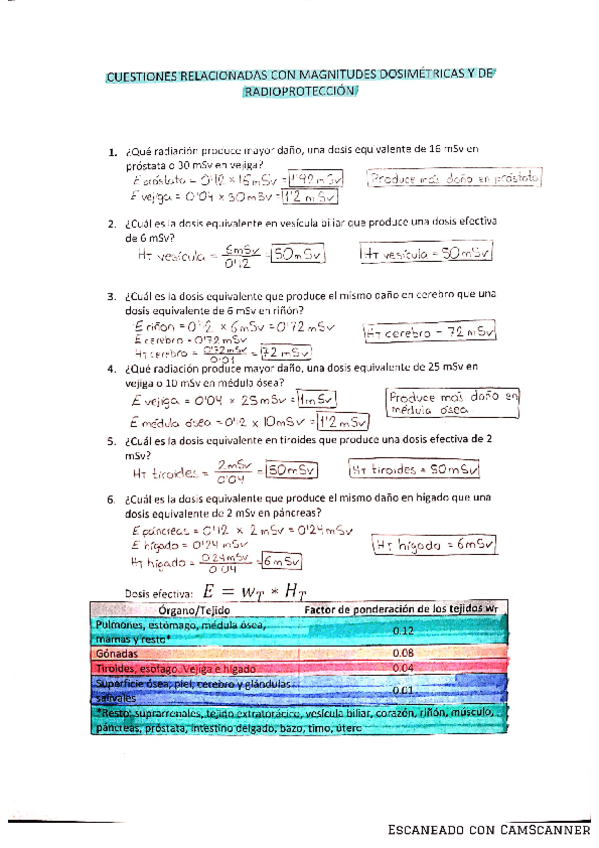 CUESTIONES RELACIONADAS CON MAGNITUDES DOSIMÉTRICAS Y DE
RADIOPROTECCIÓN
1. ¿Qué radiación produce mayor daño, una dosis equivalente de 16 mSv en
próstata o 30 mSv en vejiga?
E próstata = 0'12 x 16mSv = 1'92 mSv
Produce más daño en próstata
E vejiga = 0'04 x 30mSv = 1'2 mSv
2. ¿Cuál es la dosis equivalente en vesícula biliar que produce una dosis efectiva
de 6 mSv?
HT vesícula = 6mSv / 0'12 = 50mSv
HT vesícula = 50mSv
3. ¿Cuál es la dosis equivalente que produce el mismo daño en cerebro que una
dosis equivalente de 6 mSv en riñón?
E riñon = 0'12 x 6mSv = 0'72mSv
E cerebro = 0'72mSv
HT cerebro = 72mSv
HT cerebro = 0'72mSv / 0'01 = 72mSv
4. ¿Qué radiación produce mayor daño, una dosis equivalente de 25 mSv en
vejiga o 10 mSv en médula ósea?
E vejiga = 0'04 x 25mSv = 1mSv
Produce más daño en
médula ósea
E médula ósea = 0'12 x 10mSv = 1'2mSv
5. ¿Cuál es la dosis equivalente en tiroides que produce una dosis efectiva de 2
mSv?
HT tiroides = 2mSv / 0'04 = 50mSv
HT tiroides = 50mSv
6. ¿Cuál es la dosis equivalente que produce el mismo daño en hígado que una
dosis equivalente de 2 mSv en páncreas?
E páncreas = 0'12 x 2mSv = 0'24mSv
E hígado = 0'24mSv
HT hígado = 6mSv
HT hígado = 0'24mSv / 0'04 = 6mSv
Dosis efectiva: E = wT * HT
Órgano/Tejido Factor de ponderación de los tejidos wT
Pulmones, estómago, médula ósea,
mamas y resto* 0.12
Gónadas 0.08
Tiroides, esófago, Vejiga e hígado 0.04
Superficie ósea, piel, cerebro y glándulas
salivales 0.01
*Resto: suprarrenales, tejido extratorácico, vesícula biliar, corazón, riñón, músculo,
páncreas, próstata, intestino delgado, bazo, timo, útero
Escaneado con CamScanner